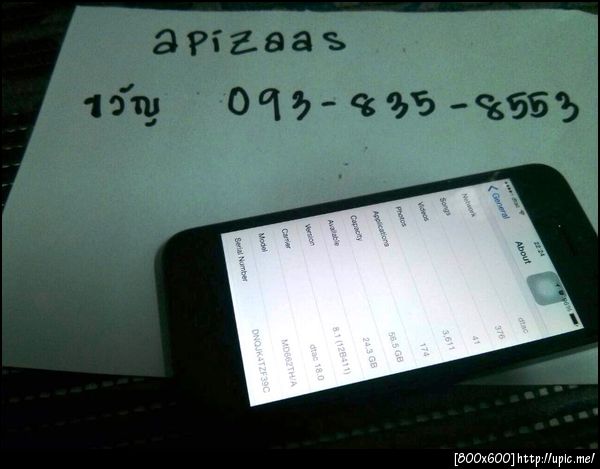 apizaas
ขวัญ 093-835-8553
dtac
22:24
96%
General
About
Network dtac
Songs 376
Videos 41
Photos 3,611
Applications 174
Capacity 56.5 GB
Available 24.3 GB
Version 8.1 (12B411)
Carrier dtac 18.0
Model MD662TH/A
Serial Number DNQJK41ZF39C
[800x600]http://upic.me/